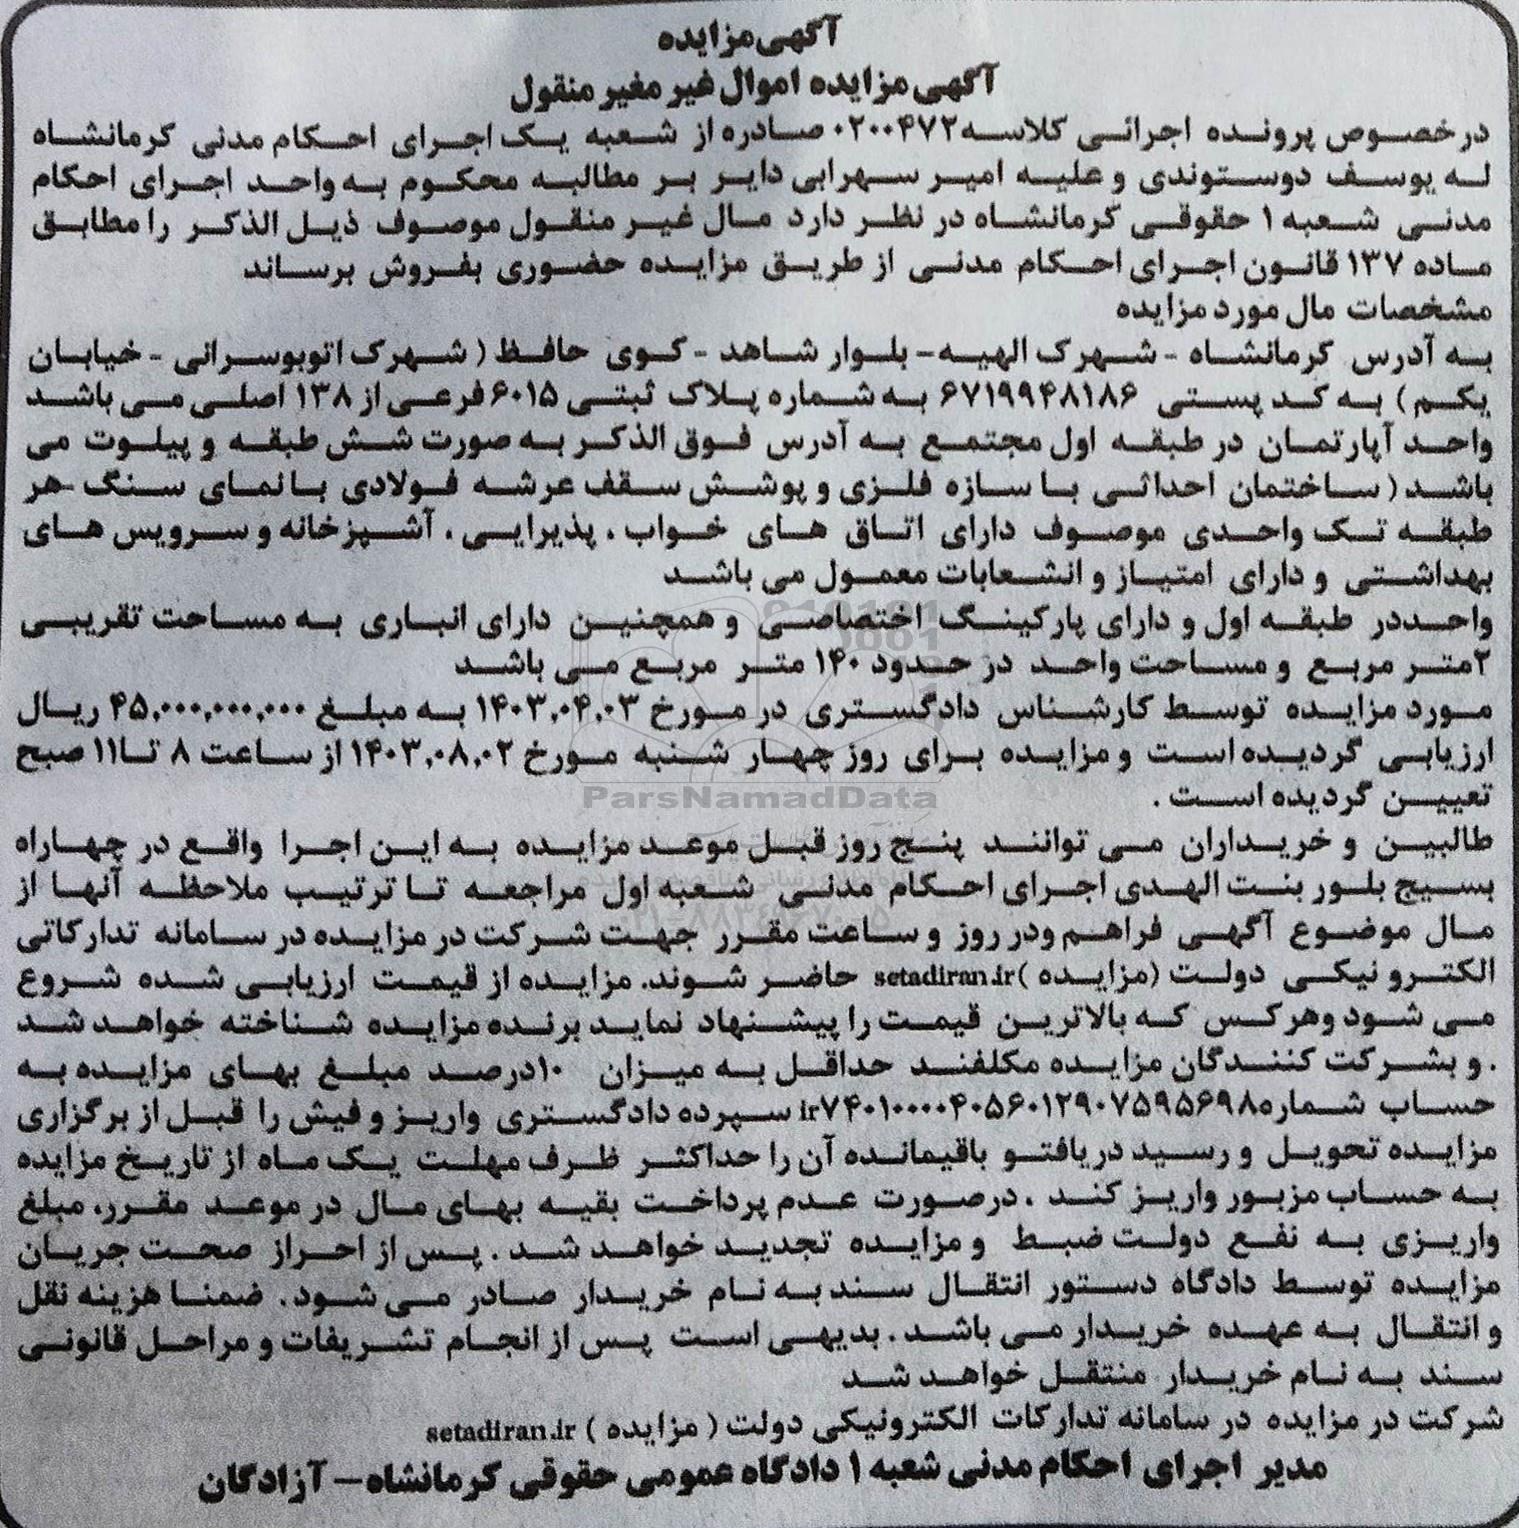 آگهی مزایده
آگهی مزایده اموال غیر مغیر منقول
در خصوص پرونده اجرائی کلاسه ۰۲۰۰۴۷۲ صادره از شعبه یک اجرای احکام مدنی کرمانشاه
له یوسف دوستوندی و علیه امیر سهرابی دایر بر مطالبه محکوم به واحد اجرای احکام
مدنی شعبه ۱ حقوقی کرمانشاه در نظر دارد مال غیر منقول موصوف ذیل الذکر را مطابق
ماده ۱۳۷ قانون اجرای احکام مدنی از طریق مزایده حضوری بفروش برساند
مشخصات مال مورد مزایده
به آدرس کرمانشاه - شهرک الهیه - بلوار شاهد - کوی حافظ ( شهرک اتوبوسرانی - خیابان
یکم ) به کد پستی ۶۷۱۹۹۴۸۱۸۶ به شماره پلاک ثبتی ۶۰۱۵ فرعی از ۱۳۸ اصلی می باشد
واحد آپارتمان در طبقه اول مجتمع به آدرس فوق الذکر به صورت شش طبقه و پیلوت می
باشد ( ساختمان احداثی با سازه فلزی و پوشش سقف عرشه فولادی با نمای سنگ -هر
طبقه تک واحدی موصوف دارای اتاق های خواب ، پذیرایی ، آشپزخانه و سرویس های
بهداشتی و دارای امتیاز و انشعابات معمول می باشد
واحددر طبقه اول و دارای پارکینگ اختصاصی و همچنین دارای انباری به مساحت تقریبی
۲متر مربع و مساحت واحد در حدود ۱۴۰ متر مربع می باشد
مورد مزایده توسط کارشناس دادگستری در مورخ ۱۴۰۳,۰۴,۰۳ به مبلغ ۴۵,۰۰۰,۰۰۰,۰۰۰ ریال
ارزیابی گردیده است و مزایده برای روز چهار شنبه مورخ ۱۴۰۳,۰۸,۰۲ از ساعت ۸ تا ۱۱ صبح
تعیین گردیده است .
ParsNamadData
طالبین و خریداران می توانند پنج روز قبل موعد مزایده به این اجرا واقع در چهاراه
بسیج بلور بنت الهدی اجرای احکام مدنی شعبه اول مراجعه تا ترتیب ملاحظه آنها از
مال موضوع آگهی فراهم ودر روز و ساعت مقرر جهت شرکت در مزایده در سامانه تدارکاتی
الکترو نیکی دولت (مزایده ) setadiran.ir حاضر شوند. مزایده از قیمت ارزیابی شده شروع
می شود وهرکس که بالاترین قیمت را پیشنهاد نماید برنده مزایده شناخته خواهد شد
. و بشرکت کنندگان مزایده مکلفند حداقل به میزان ۱۰درصد مبلغ بهای مزایده به
حساب شماره ir۷۴۰۱۰۰۰۰۴۰۵۶۰۱۲۹۰۷۵۹۵۶۹۸ سپرده دادگستری واریز و فیش را قبل از برگزاری
مزایده تحویل و رسید دریافتو باقیمانده آن را حداکثر ظرف مهلت یک ماه از تاریخ مزایده
به حساب مزبور واریز کند . درصورت عدم پرداخت بقیه بهای مال در موعد مقرر، مبلغ
واریزی به نفع دولت ضبط و مزایده تجدید خواهد شد . پس از احراز صحت جریان
مزایده توسط دادگاه دستور انتقال سند به نام خریدار صادر می شود . ضمنا هزینه نقل
و انتقال به عهده خریدار می باشد . بدیهی است پس از انجام تشریفات و مراحل قانونی
سند به نام خریدار منتقل خواهد شد
شرکت در مزایده در سامانه تدارکات الکترونیکی دولت ( مزایده ) setadiran.ir
مدیر اجرای احکام مدنی شعبه ۱ دادگاه عمومی حقوقی کرمانشاه – آزادگان